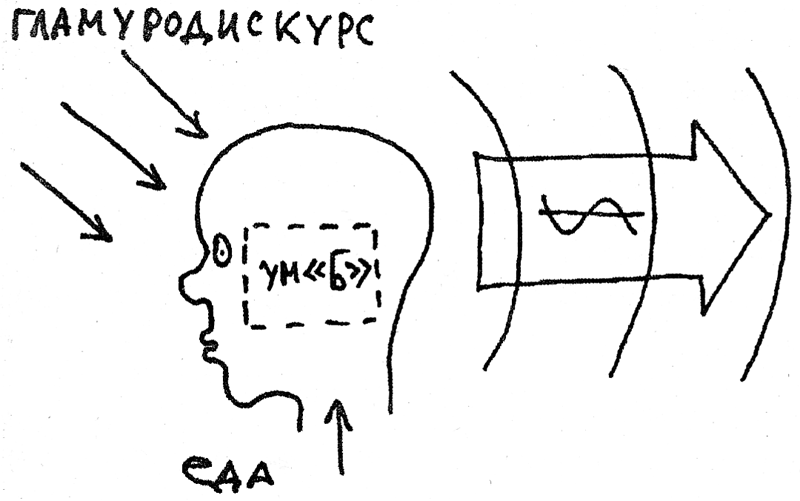 ГЛАМУРОДИСКУРС
УМ«Б»
еДА